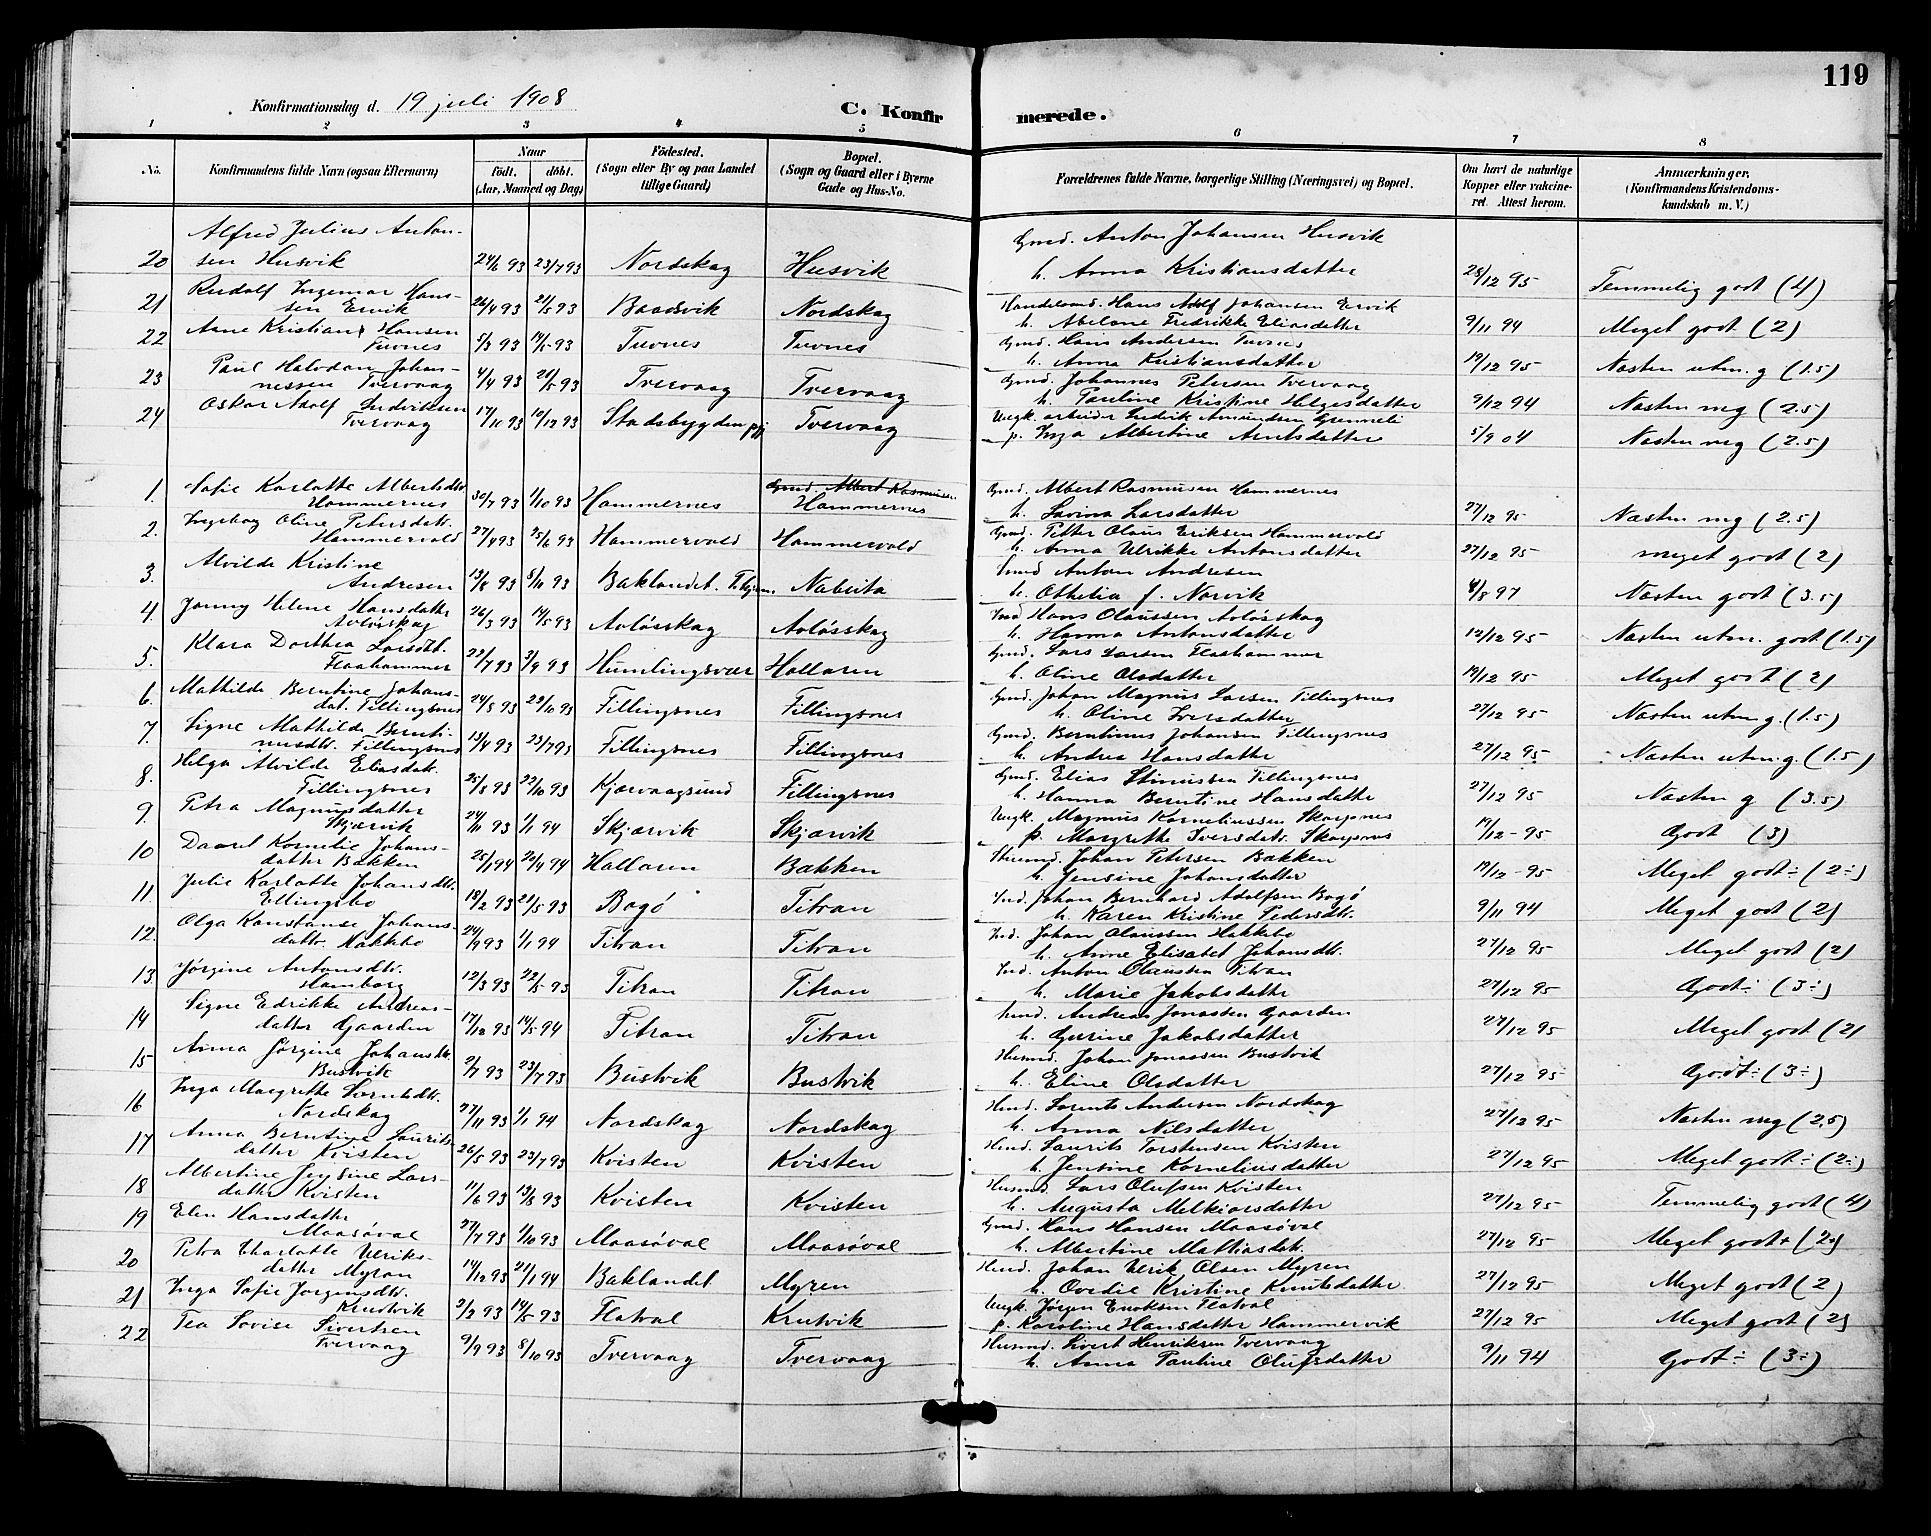 119
Konfirmationsdag d. 19 juli 1908
C. Konfirmerede.
1 2 3 4 5 6 7 8
No. Konfirmandens fulde Navn (ogsaa Efternavn) Naar født. døbt. (Aar, Maaned og Dag) Fødested. (Sogn eller By og paa Landet tillige Gaard) Bopæl. (Sogn og Gaard eller i Byerne Gade og Hus-No. Forældrenes fulde Navne, borgerlige Stilling (Næringsvei) og Bopæl. Om havt de naturlige Kopper eller vakcineret. Attest herom. Anmærkninger. (Konfirmandens Kristendomskundskab m. V.)
Alfred Julius Anton- Gmd. Anton Johansen Husvik
20 sen Husvik 24/6 93 23/7 93 Nordskag Husvik h. Anna Kristiansdatter 28/12 95 Temmelig godt (4)
Rudolf Ingemar Hans- Handelsmd. Hans Adolf Johansen Ervik
21 sen Ervik 26/4 93 21/5 93 Baadsvik Nordskag h. Abelone Fredrikke Eliasdatter 9/11 94 Meget godt (2)
Arne Kristian Hansen Gmd. Hans Andersen Tuvnes
22 Tuvnes 5/3 93 14/5 93 Tuvnes Tuvnes h. Anna Kristiansdatter 19/12 95 Næsten utm. g (1.5)
Paul Halvdan Johan- Gmd. Johannes Petersen Tvervaag
23 nessen Tvervaag 4/4 93 21/5 93 Tvervaag Tvervaag h. Pauline Kristine Helgesdatter 9/12 94 Næsten mg (2.5)
Oskar Adolf Ludviksen Ungk. arbeider Ludvik Amundsen
24 Tvervaag 17/10 93 10/12 93 Stadsbygden pgj Tvervaag p. Inga Albertine Arntsdatter 5/9 04 Næsten mg (2.5)
Sofie Karlotte Albertsdtr. Gmd. Albert Rasmussen Gmd. Albert Rasmusen Hammernes
1. Hammernes 30/7 93 1/10 93 Hammernes Hammernes h. Lovina Larsdatter 27/12 95 Næsten mg (2.5)
Ingebog Oline Petersdatr. Gmd. Petter Olaus Eriksen Hammervold
2. Hammervold 27/4 93 25/6 93 Hammervold Hammervold h. Anna Ulrikke Antonsdatter 27/12 95 meget godt (2)
Alvilde Kristine Smed Anton Andresen
3. Andresen 13/8 93 5/11 93 Baklandet. Nabeita h. Othelia f. Norvik 4/8 97 Næsten godt (3.5)
Jonny Helene Hansdatter Hans Olaussen Avløsskag
4 Avløsskag 26/3 93 14/5 93 Avløsskag Avløsskag h. Hanna Antonsdatter 12/12 95 Næsten utm. godt (1.5)
Klara Dorthea Larsdtr. Gmd. Lars Larsen Flaahammer
5. Flaahammer 22/7 93 3/9 93 Humlingsvær Hallaren h. Oline Olsdatter 19/12 95 Meget godt (2)
Mathilde Berntine Johans- Gmd. Johan Magnus Larsen Fillingsnes
6. dat. Fillingsnes 24/8 93 29/10 93 Fillingsnes Fillingsnes h. Oline Iversdatter 27/12 95 Næsten utm g. (1.5)
Signe Mathilde Bernti- Gmd. Berntinus Johansen Fillingsnes
7. nusdtr. Fillingsnes 13/4 93 23/7 93 Fillingsnes Fillingsnes h. Andrea Hansdatter 27/12 95 Næsten utm. g. (1.5)
Helga Alvilde Eliasdatr. Gmd. Elias Stinussen Fillingsnes
8. Fillingsnes 25/8 93 22/10 93 Kjærvaagsund Fillingsnes h. Hanna Berntine Hansdatter 27/12 95 Næsten g (3.5)
Petra Magnusdatter Ungk. Magnus Korneliussen Skarpnes
9 Skjærvik 24/11 93 1/1 94 Skjærvik Skjærvik p. Margrethe Iversdatr. Skarpnes 19/12-95 Godt (3)
Daarel Kornelie Johans- Johan Petersen Bakken
10 datter Bakken 25/1 94 22/4 94 Hallaren Bakken h. Jensine Johansdatter 19/12-95 Meget godt÷ (2÷)
Julie Karlotte Johansdtr. Ind. Johan Bernhard Adolfsen Bogø
11 Ellingsbo 18/2 93 21/5 93 Bogø Titran h. Karen Kristine Pedersdtr. 9/11 94 Meget godt (2)
Olga Konstanse Johans- Johan Olaussen Hakkebo
12. dattr. Hakkebo 24/9 93 1/1 94 Titran Titran h. Anne Elisabet Johansdtr. 27/12 95 Meget godt (2)
Jørgine Antonsdtr. Ind. Anton Olaussen Titran
13 Hamborg 12/3 93 22/5 93 Titran Titran h. Marie Jakobsdatter 27/12 95 Godt÷ (3÷)
Signe Edrikke Andreas- Andreas Jonassen Gaarden
14 datter Gaarden 17/12 93 14/5 94 Titran Titran h. Gurine Jakobsdatter 27/12 95 Meget godt (2)
Anna Jørgine Johansdtr. Husmd. Johan Jonassen Bustvik
15 Bustvik 2/7 93 23/7 93 Bustvik Bustvik h. Eline Olsdatter 27/12 95 Godt÷ (3÷)
Inga Margrethe Lorntsdtr. Husmd. Lorents Andersen Nordskag
16 Nordskag 27/11 93 1/1 94 Nordskag Nordskag h. Anna Nilsdatter 27/12 95 Næsten mg (2.5)
Anna Berntine Laurits- Husmd. Laurits Torstensen Kvisten
17 datter Kvisten 26/5 93 23/7 93 Kvisten Kvisten h. Jensine Korneliusdatter 27/12 95 Meget godt÷ (2÷)
Albertine Jensine Lars- Husmd. Lars Olufsen Kvisten
18 datter Kvisten 11/6 93 13/8 93 Kvisten Kvisten h. Augusta Melkiorsdatter 27/12 95- Temmelig godt (4)
Elen Hansdatter Gmd. Hans Hansen Maasøval
19 Maasøval 27/7 93 1/10 93 Maasøval Maasøval h. Albertine Mattiasdatr. 27/12 95 Meget godt (2)
Petra Charlotte Ulriks- Husmd. Johan Ulrik Olsen Myren
20 datter Myran 14/12 93 21/1 94 Baklandet Myren h. Ovedie Kristine Knutsdatter 27/12 95 Meget godt (2)
Inga Sofie Jørgensdtr. Ungk. Jørgen Enoksen Flatval
21 Krutvik 2/2 93 14/5 93 Flatval Krutvik p. Karoline Hansdatter Hammervik 27/12 95 Meget godt (2)
Tea Lovise Sivertsen Husmd. Sivert Henriksen Tvervaag
22 Tvervaag 9/9 93 8/10 93 Tvervaag Tvervaag h. Anna Pauline Olufsdatter 9/11 94 Godt÷ (3÷)